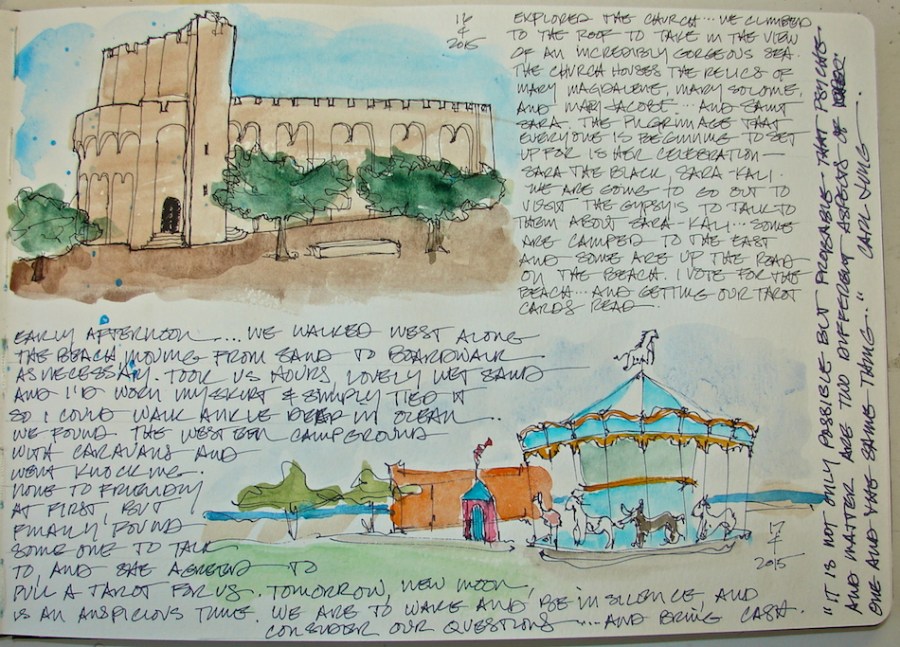 16
4
2015
EXPLORED THE CHURCH... WE CLIMBED
TO THE ROOF TO TAKE IN THE VIEW
OF AN INCREDIBLY GORGEOUS SEA.
THE CHURCH HOUSES THE RELICS OF
MARY MAGDALENE, MARY SOLOME,
AND MARY JACOBE... AND SAINT
SARA. THE PILGRIMAGE THAT
EVERYONE IS BEGINNING TO SET
UP FOR IS HER CELEBRATION—
SARA THE BLACK, SARA-KALI.
WE ARE GOING TO GO OUT TO
VISIT THE GYPSYIS TO TALK TO
THEM ABOUT SARA-KALI... SOME
ARE CAMPED TO THE EAST
AND SOME ARE UP THE ROAD
ON THE BEACH. I VOTE FOR THE
BEACH... AND GETTING OUR TAROT
CARDS READ—
EARLY AFTERNOON.... WE WALKED WEST ALONG
THE BEACH, MOVING FROM SAND TO BOARDWALK
AS NECESSARY. TOOK US HOURS, LOVELY WET SAND
AND I'D WORN MY SKIRT & SIMPLY TIED IT
SO I COULD WALK ANKLE DEEP IN OCEAN..
WE FOUND THE WESTERN CAMPGROUND
WITH CARAVANS AND
WENT KNOCKING.
NONE TO FRIENDLY
AT FIRST, BUT
FINALLY, FOUND
SOME ONE TO TALK
TO, AND SHE AGREED TO
PULL A TAROT FOR US. TOMORROW, NEW MOON,
IS AN AUSPICIOUS TIME. WE ARE TO WAKE AND BE IN SILENCE, AND
CONSIDER OUR QUESTIONS .... AND BRING CASH.
17
4
2015
"IT IS NOT ONLY POSSIBLE BUT PROBABLE - THAT PSYCHE
AND MATTER ARE TWO DIFFERENT ASPECTS OF
ONE AND THE SAME THING.." CARL JUNG